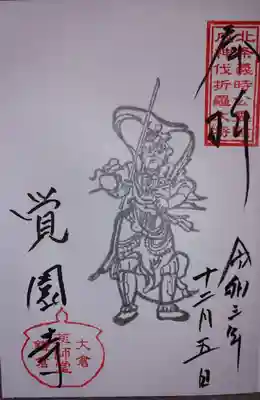 奉拝
北条義時公
戌神伐折羅大将
令和三年
十二月五日
覚園寺
大倉
薬師堂
鎌倉